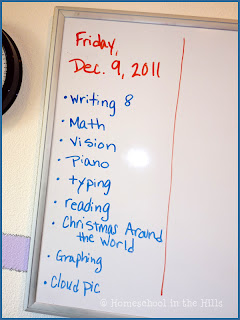 Friday,
Dec. 9, 2011
• Writing 8
• Math
• Vision
• Piano
• typing
• reading
• Christmas Around
the World
• Graphing
• Cloud pic
© Homeschool in the Hills